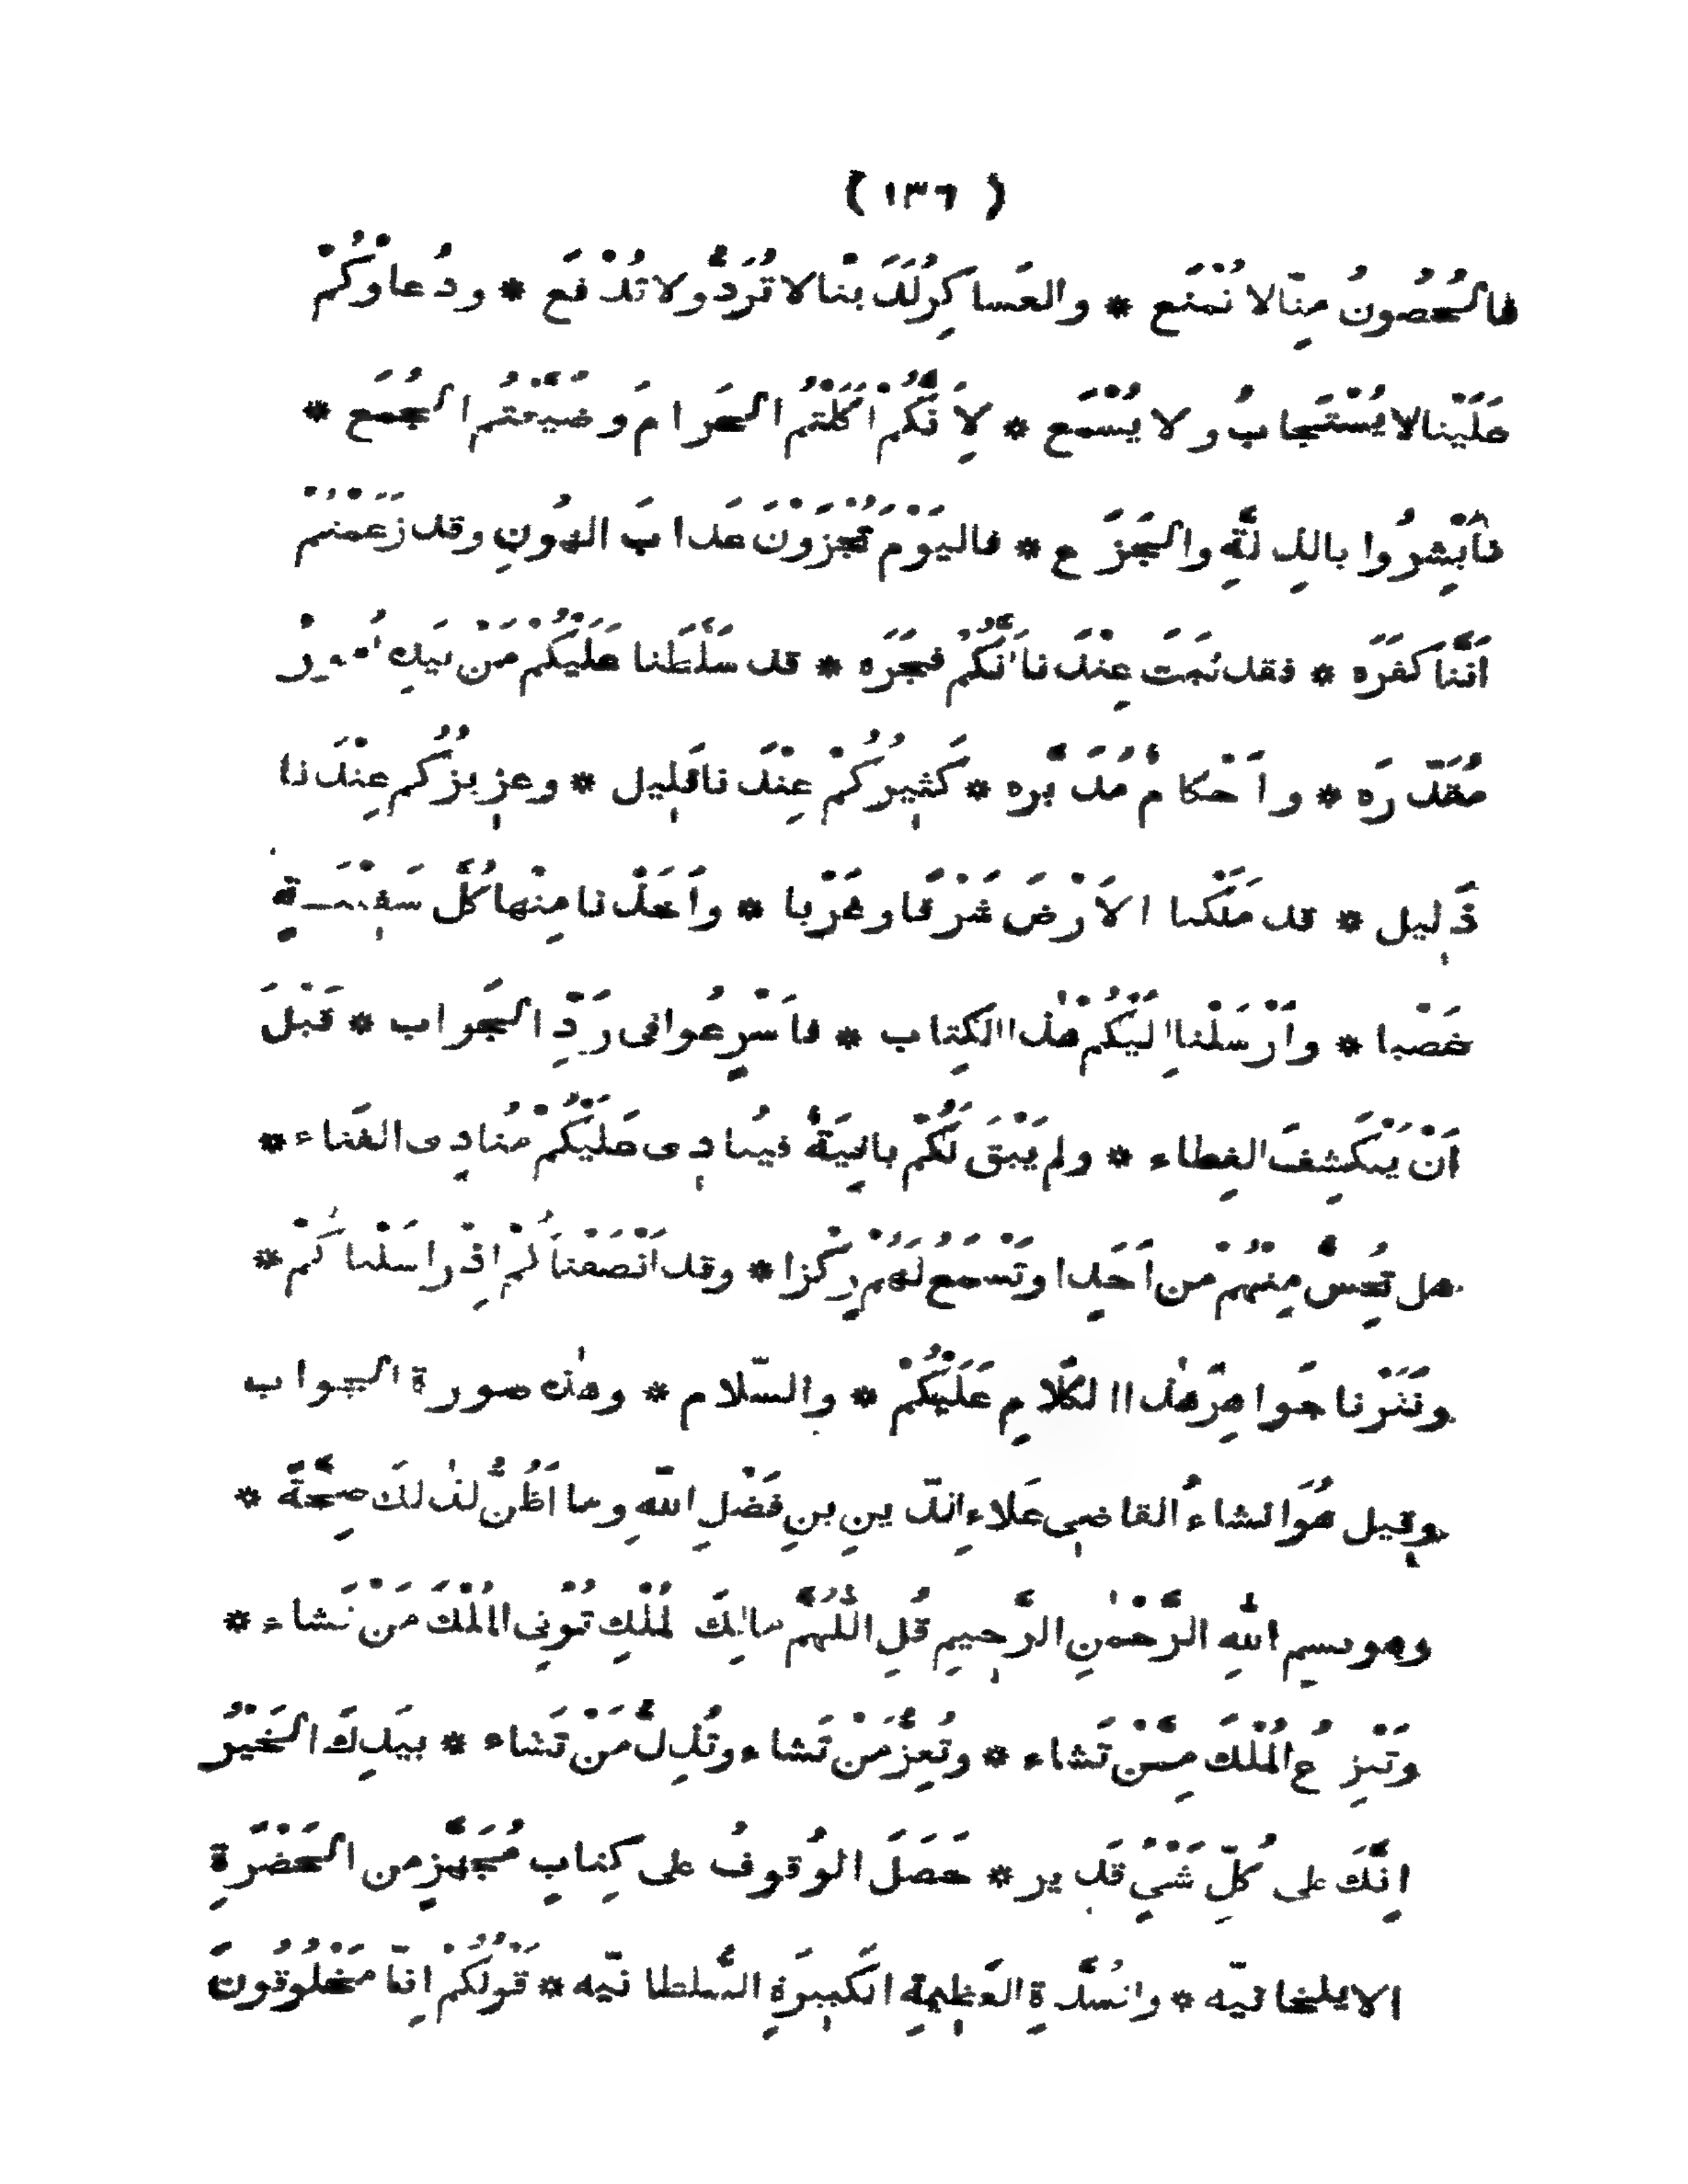 ( ١٣٦ )
فالحُصُونُ مِنّا لا تُمْنَع * والعَساكِرُ لَدَيْنا لا تُرَدُّ ولا تُدْفَع * ودُعاؤكُمْ
عَلَيْنا لا يُسْتَجابُ ولا يُسْمَع * لِأَنَّكُمْ اَكَلْتُمُ الحَرامَ وضَيَّعْتُمُ الجُمَع *
فأَبْشِرُوا بالذِلَّةِ والجَزَع * فاليَوْمَ تُجْزَوْنَ عَذابَ الهُونِ وقد زَعَمْتُمْ
اَنَّنا كَفَرَه * فقد ثَبَتَ عِنْدَنا اَنَّكُمْ فَجَرَه * قد سَلَّطَنا عَلَيْكُمْ مَنْ بيَدِهِ اُمُورٌ
مُقَدَّرَه * واَحْكامٌ مُدَبَّرَه * كَثِيرُكُمْ عِنْدَنا قَلِيل * وعزِيزُكُم عِنْدَنا
ذَلِيل * قد مَلَكْنا الاَرْضَ شَرْقًا وغَرْبا * واَخَذْنا مِنْها كُلَّ سَفِيْنَةٍ
غَصْبا * واَرْسَلْنا اِلَيْكُمْ هٰذا الكِتاب * فاَسْرِعُوا فى رَدِّ الجَواب * قَبْلَ
اَنْ يَنْكَشِفَ الغِطاء * ولم يَبْقَ لَكُمْ باقِيَةٌ فيُنادِى عَلَيْكُمْ مُنادِى الفَناء *
هل تُحِسُّ مِنْهُمْ من اَحَدٍ او تَسْمَعُ لَهُمْ رِكْزا * وقد اَنْصَفْناكُمْ اِذْ راسَلْناكُمْ *
ونَثَرْنا جَواهِرَ هٰذا الكَلامِ عَلَيْكُمْ * والسّلام * وهٰذه صورة الجواب
وقِيل هُوَ انشاءُ القاضِى عَلاءِ الدّينِ بنِ فَضْلِ اللّهِ وما اَظُنُّ لذٰلكَ صِحَّةً *
وهو بسمِ اللّٰهِ الرَّحْمٰنِ الرَّحِيمِ قُلِ اللّٰهُمَّ مالِكَ لمُلْكِ تُؤْتِى المُلْكَ مَنْ تَشاء *
وتَنْزِعُ المُلْكَ مِمَّنْ تَشاء * وتُعِزُّ مَنْ تَشاء وتُذِلُّ مَنْ تَشاء * بيَدِكَ الخَيْرُ
اِنَّكَ على كُلِّ شَيْءٍ قدِير * حَصَلَ الوُقوفُ على كِتابٍ مُجَهَّزٍ من الحَضْرَةِ
الايلخانيّه * والسُّدّةِ العَظِيمَةِ الكَبِيرَةِ السُّلطانيّه * قَوْلُكُمْ اِنّا مَخْلُوقُونَ